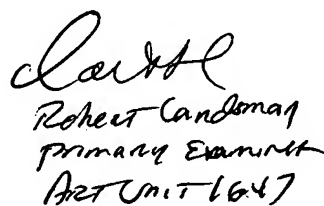 Robert Landsman
Primary Examiner
Art Unit 1647